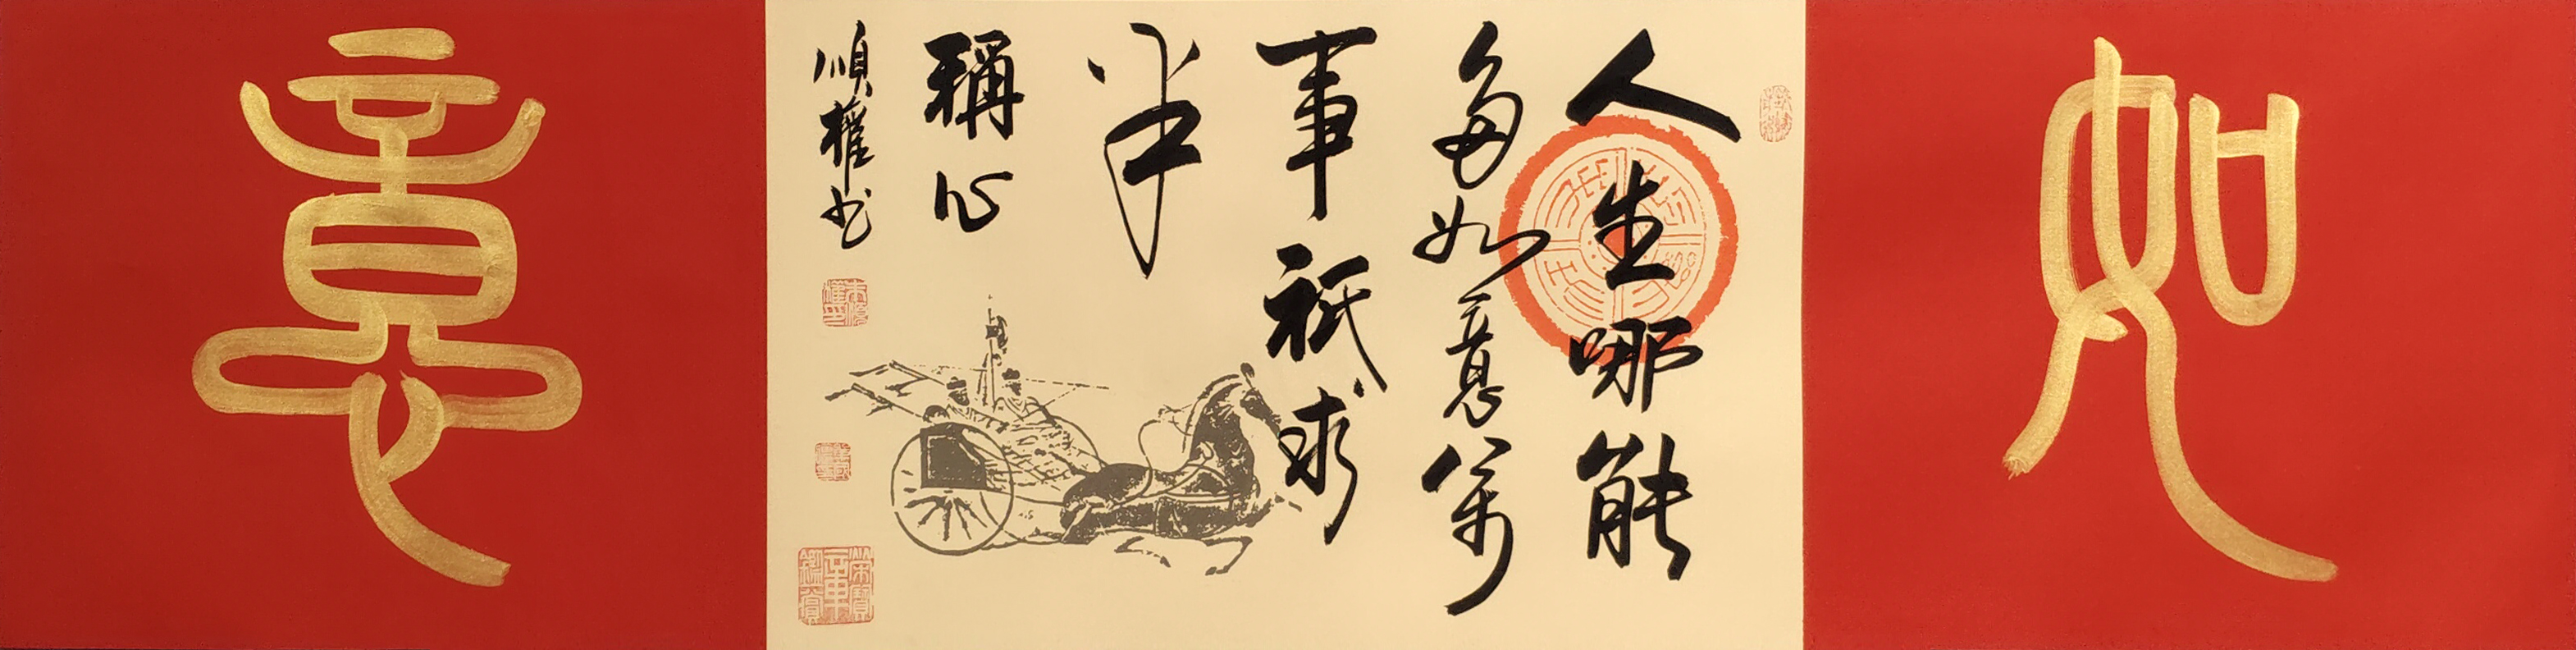 如
人生哪能
多如意萬
事祇求
半
稱心
順權书
意